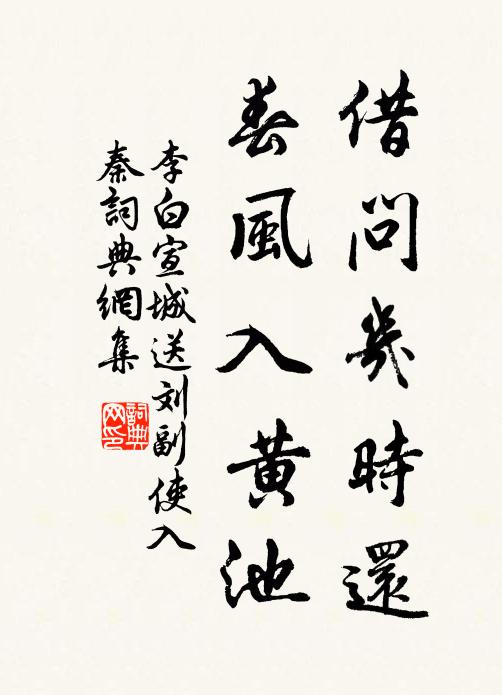 借問幾時還
春風入黄池
李白宣城送刘副使入
秦詞典網集
詞典网印